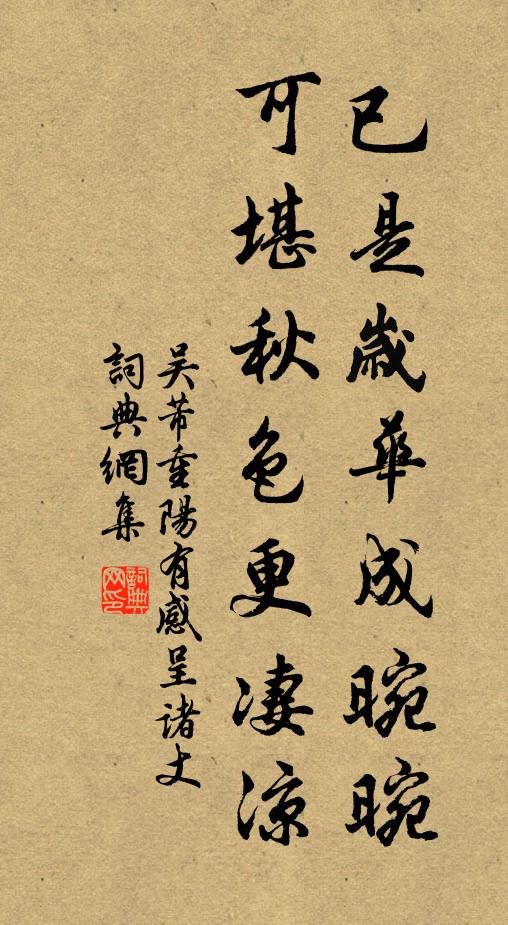 已是歲華成晼晼
可堪秋色更凄涼
吴芾重陽有感呈诸丈
詞典網集
詞典网印